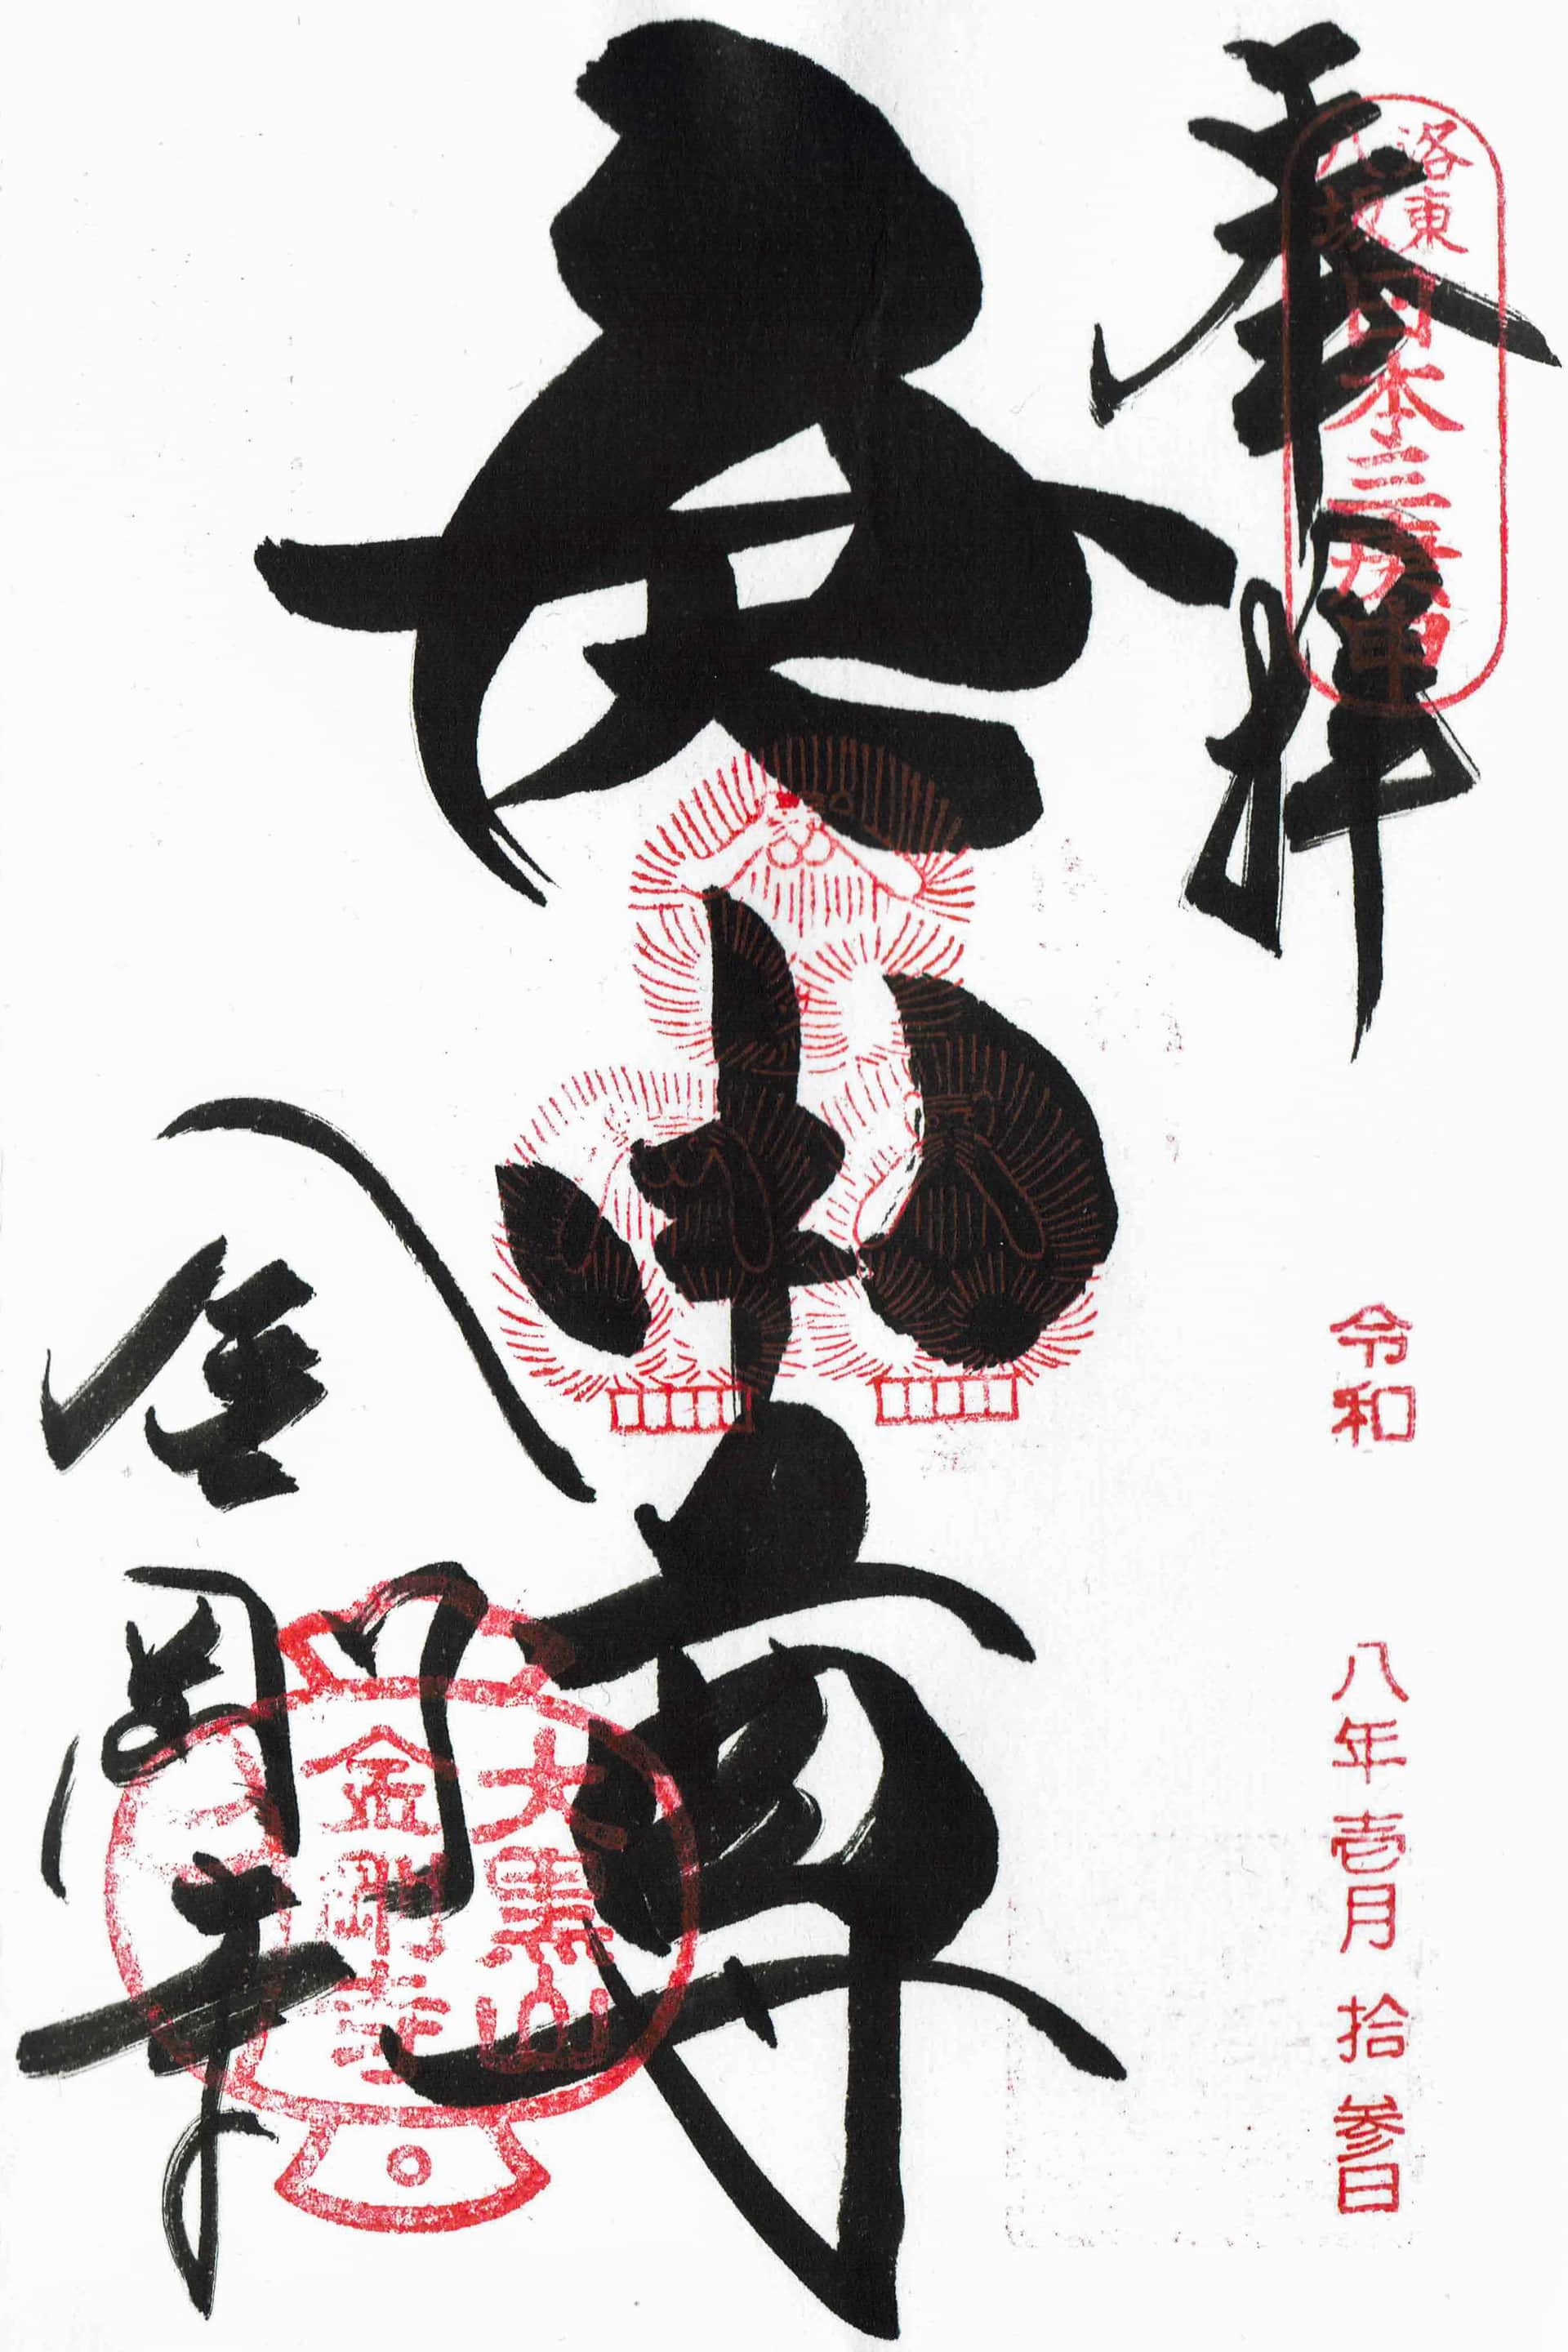 奉拝
洛東
八坂
日本三庚申
令和 八年 壱月 拾参日
庚申尊
八坂
金剛寺
大黒山
金剛寺